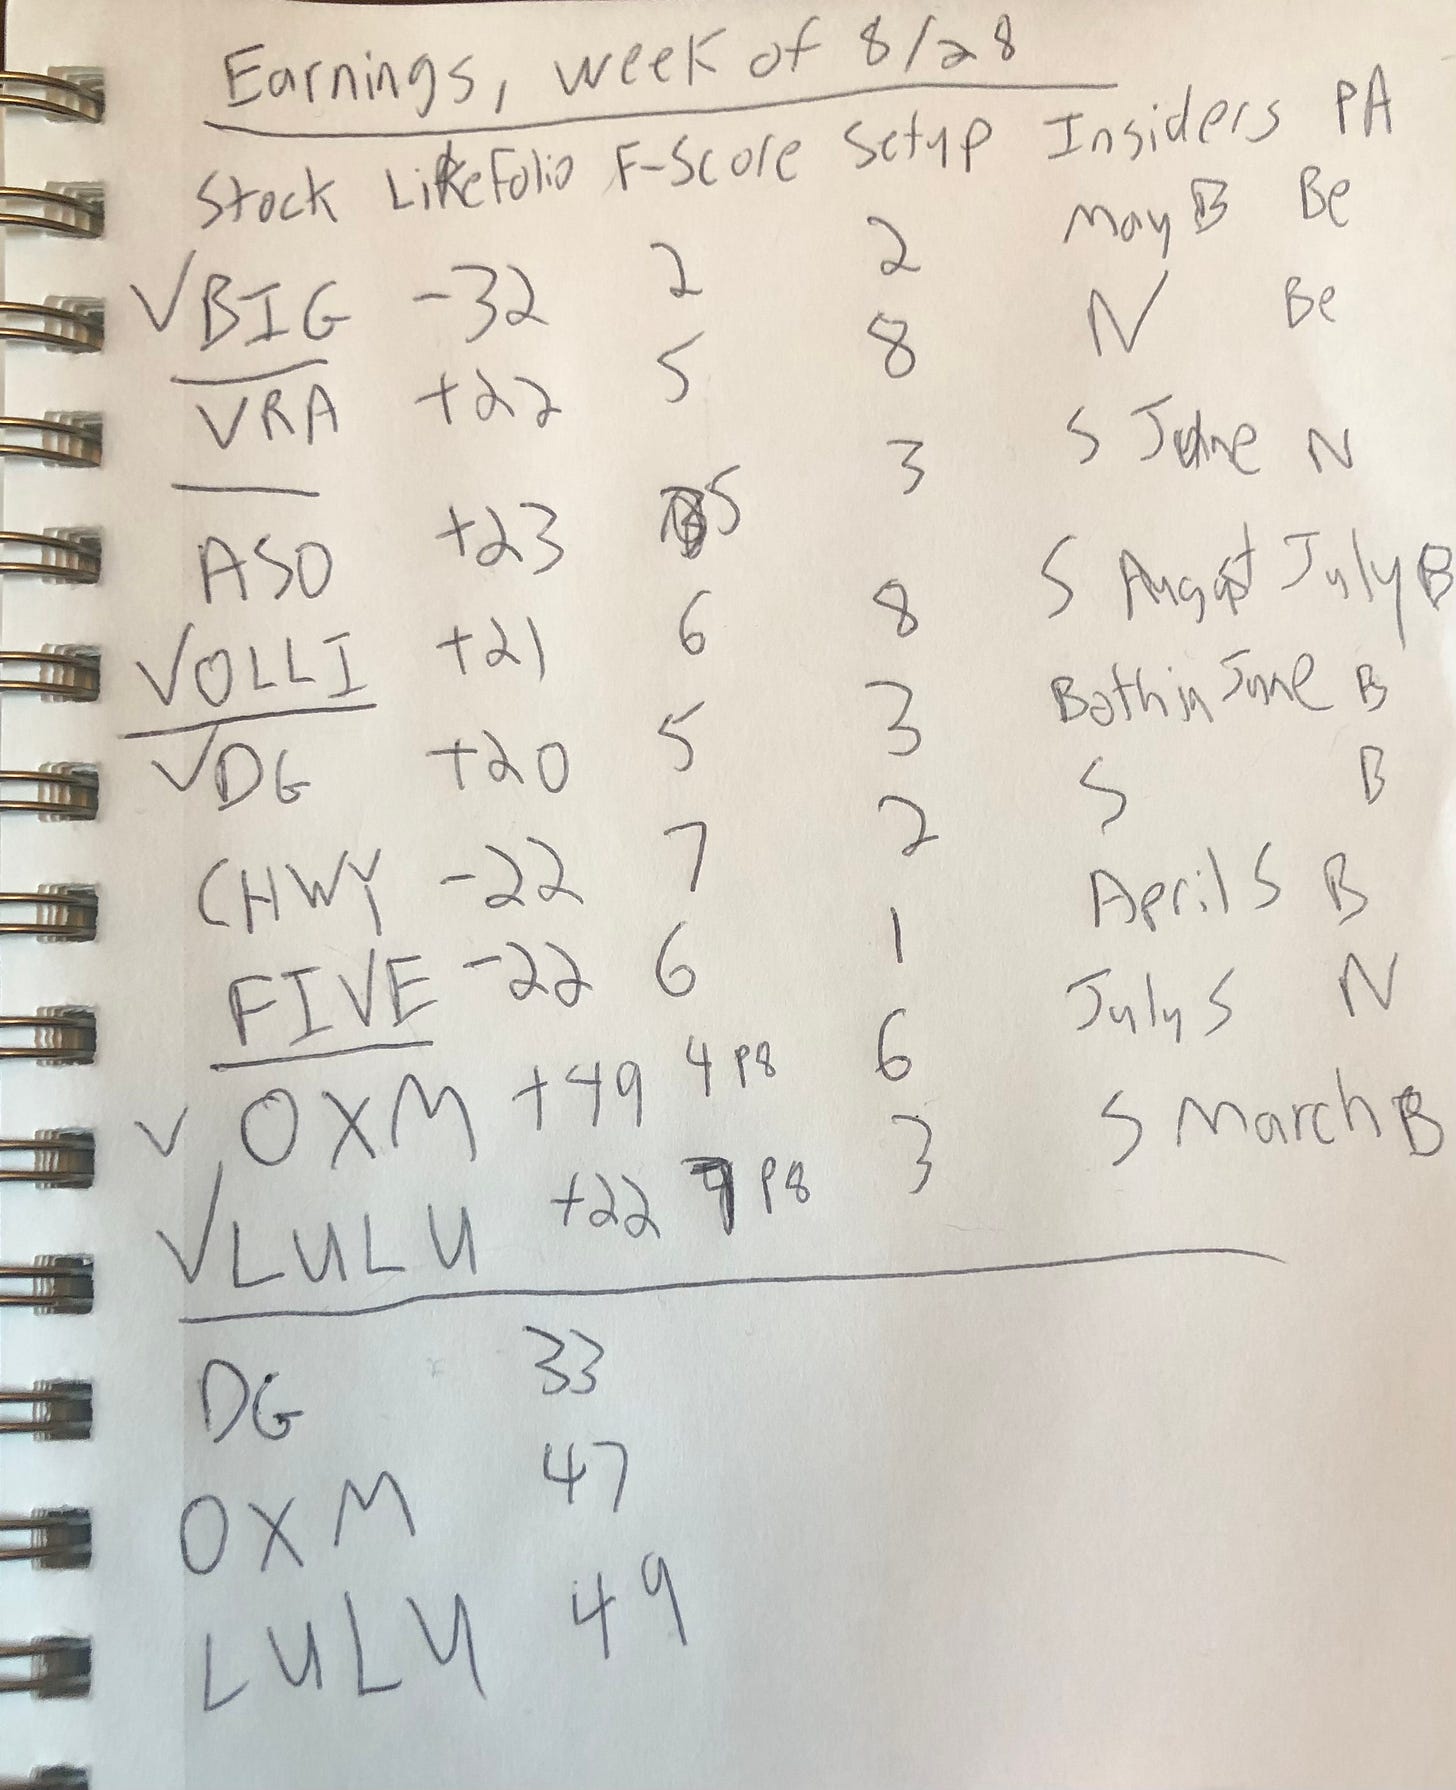 Earnings, week of 8/28
Stock LikeFolio F-Score Setup Insiders PA
✓BIG -32 2 2 May B Be
VRA +22 5 8 N Be
ASO +23 5 3 S June N
✓OLLI +21 6 8 S August July B
✓DG +20 5 3 Both in June B
CHWY -22 7 2 S B
FIVE -22 6 1 April S B
✓ OXM +49 4 P8 6 July S N
✓LULU +22 P8 3 S March B
DG 33
OXM 47
LULU 49